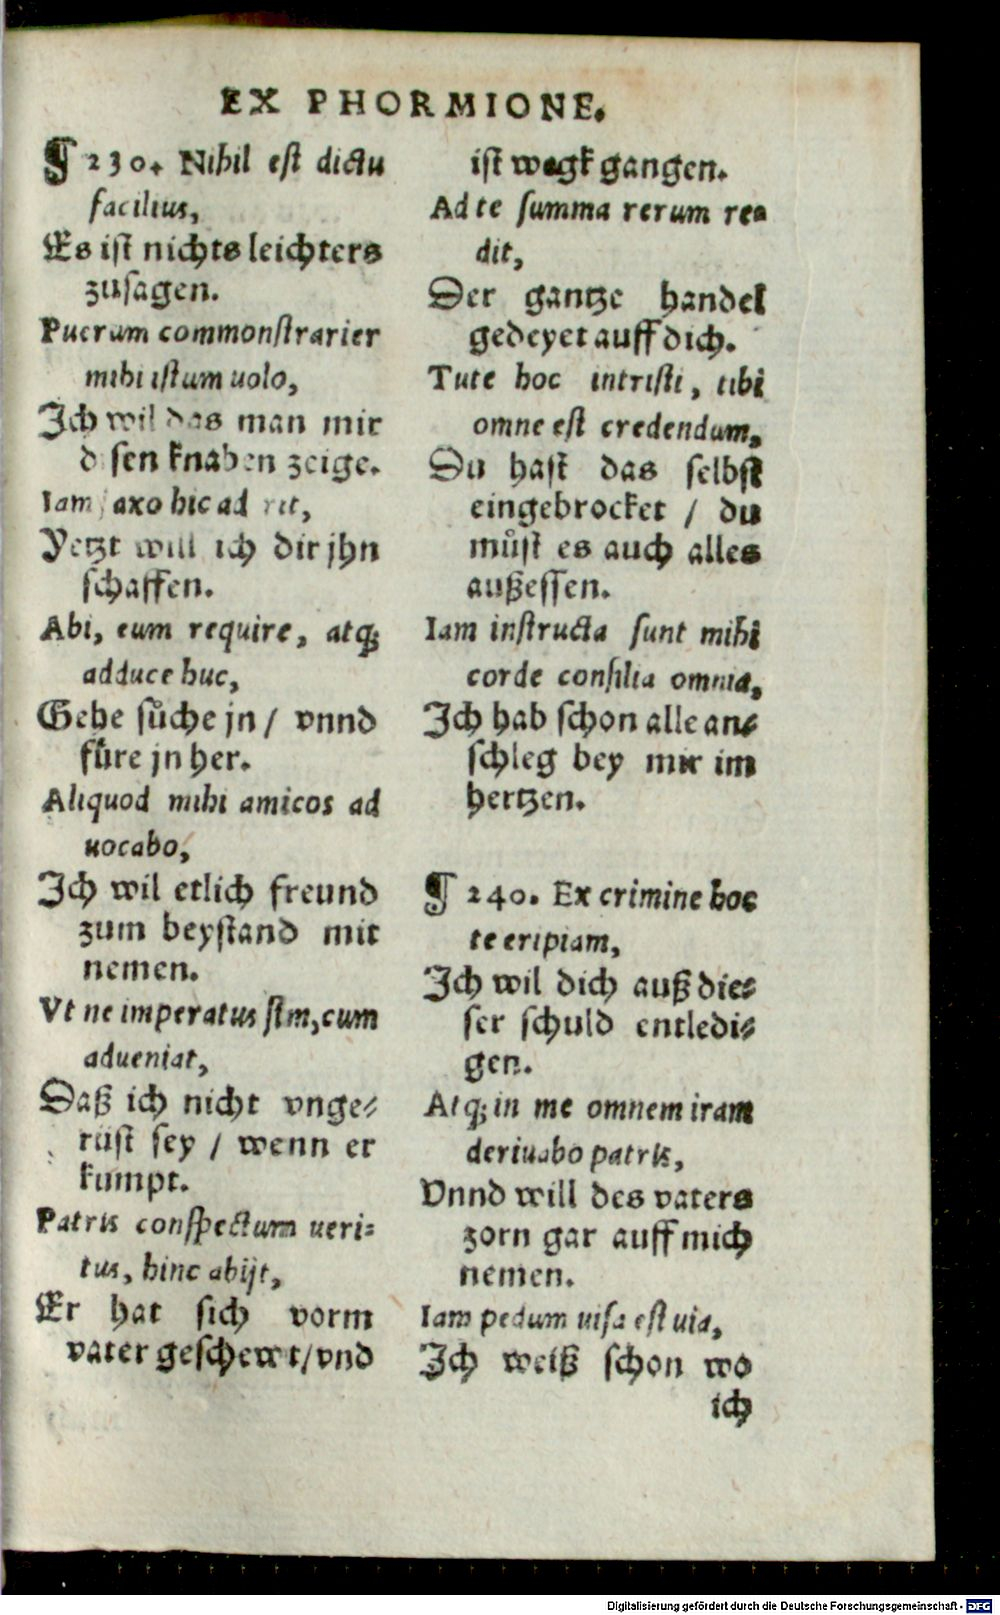 EX PHORMIONE.
¶ 230. Nihil est dictu
facilius,
Es ist nichts leichters
zusagen.
Puerum commonstrarier
mihi istum uolo,
Ich wil das man mir
disen knaben zeige.
Iam faxo hic aderit,
Yetzt will ich dir jhn
schaffen.
Abi, eum require, atq;
adduce huc,
Gehe sůche jn / vnnd
fůre jn her.
Aliquod mihi amicos ad
uocabo,
Ich wil etlich freund
zum beystand mit
nemen.
Vt ne imperatus sim, cum
adueniat,
Daß ich nicht vnge-
rüst sey / wenn er
kumpt.
Patris conspectum ueri-
tus, hinc abijt,
Er hat sich vorm
vater geschewt/vnd
ist wegk gangen.
Ad te summa rerum re-
dit,
Der gantze handel
gedeyet auff dich.
Tute hoc intristi, tibi
omne est credendum,
Du hast das selbst
eingebrocket / du
můst es auch alles
außessen.
Iam instructa sunt mihi
corde consilia omnia,
Ich hab schon alle an-
schleg bey mir im
hertzen.
¶ 240. Ex crimine hoc
te eripiam,
Ich wil dich auß die-
ser schuld entledi-
gen.
Atq; in me omnem iram
deriuabo patris,
Vnnd will des vaters
zorn gar auff mich
nemen.
Iam pedum uisa est uia,
Ich weiß schon wo
ich
Digitalisierung gefördert durch die Deutsche Forschungsgemeinschaft - DFG